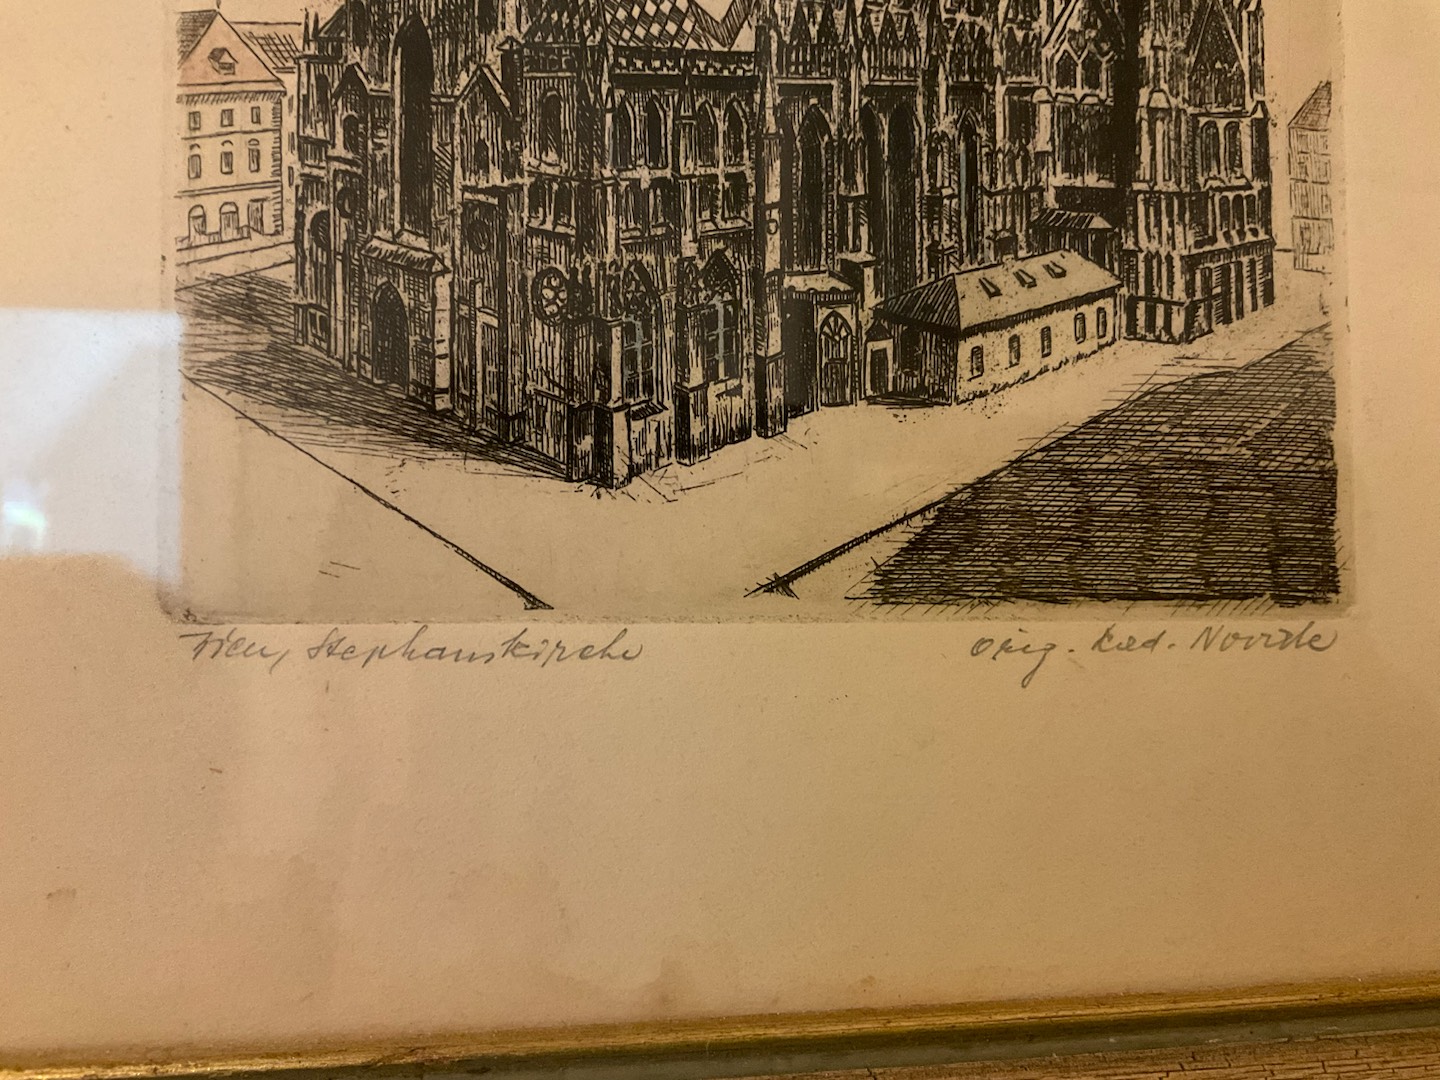 Wien, Stephanskirche
Orig. Rad.